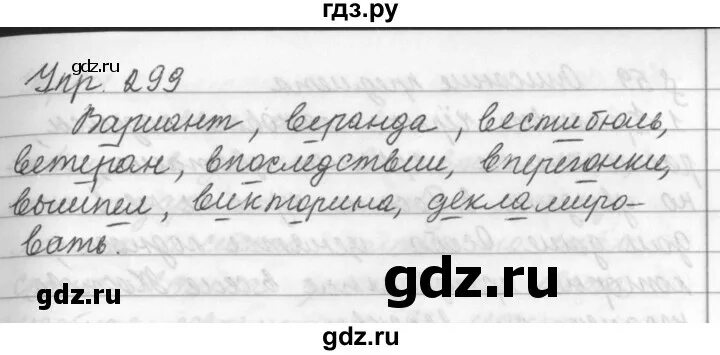 гдз.ру
Упр. 299
Вариант, веранда, вестибюль,
ветеран, впоследствии, вперегонки,
вымпел, викторина, декламиро-
вать.
gdz.ru
gdz.ru
gdz.ru
gdz.ru
gdz.ru
gdz.ru
gdz.ru